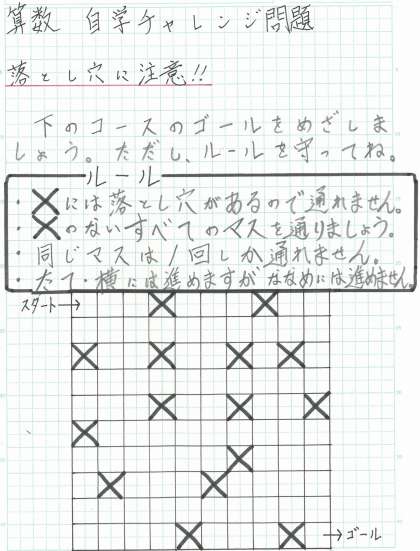 算数 自学チャレンジ問題
落とし穴に注意!!
下のコースのゴールをめざしま
しょう。ただし、ルールを守ってね。
ルール
・×には落とし穴があるので通れません。
・×のないすべてのマスを通りましょう。
・同じマスは1回しか通れません。
・たて・横には進めますがななめには進めません。
スタート→
→ゴール